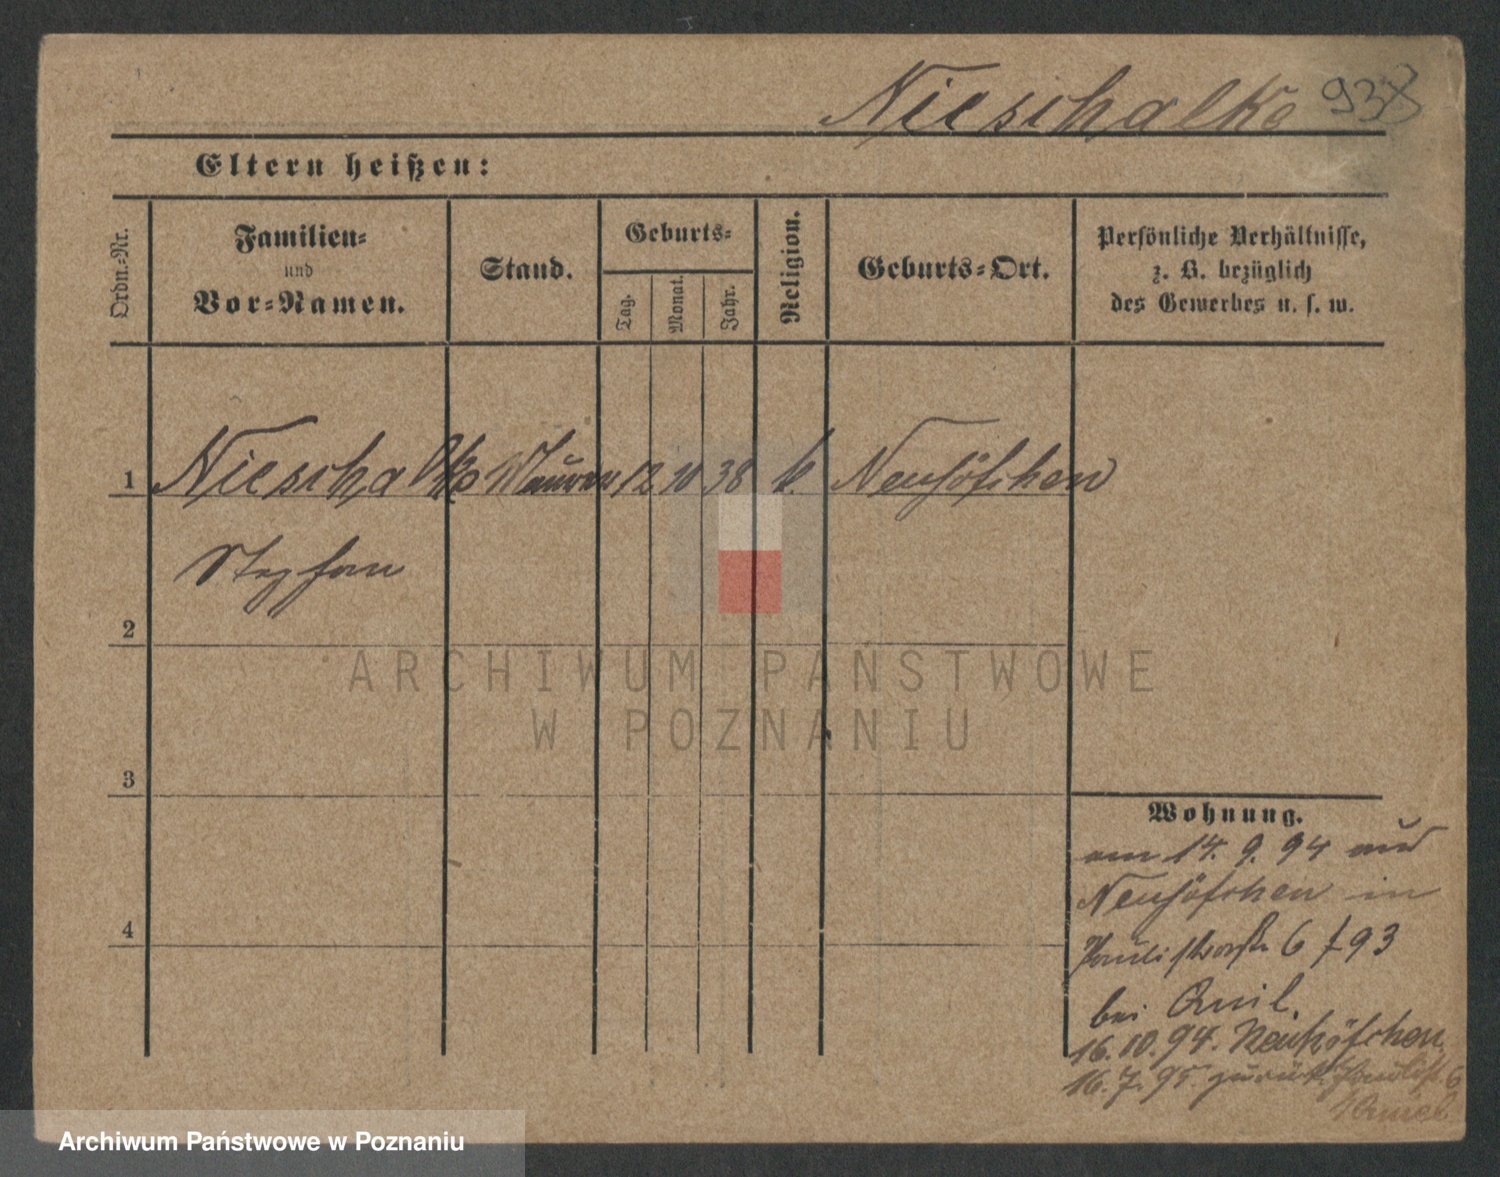 Nieschalke 938
Eltern heißen:
Ordn.-Nr.
Familien-
und
Vor-Namen.
Stand.
Geburts-
Tag.
Monat.
Jahr.
Religion.
Geburts-Ort.
Persönliche Verhältnisse,
z. B. bezüglich
des Gewerbes u. s. w.
1 Nieschalke Maurer 12 10 38 k. Neuhöfchen
Stephan
2
3
4
Wohnung.
am 14. 9. 94 aus
Neuhöfchen in
6 / 93
bei
16. 10. 94. Neuhöfchen
16. 7. 95. zurück 6
ARCHIWUM PAŃSTWOWE
W POZNANIU
Archiwum Państwowe w Poznaniu